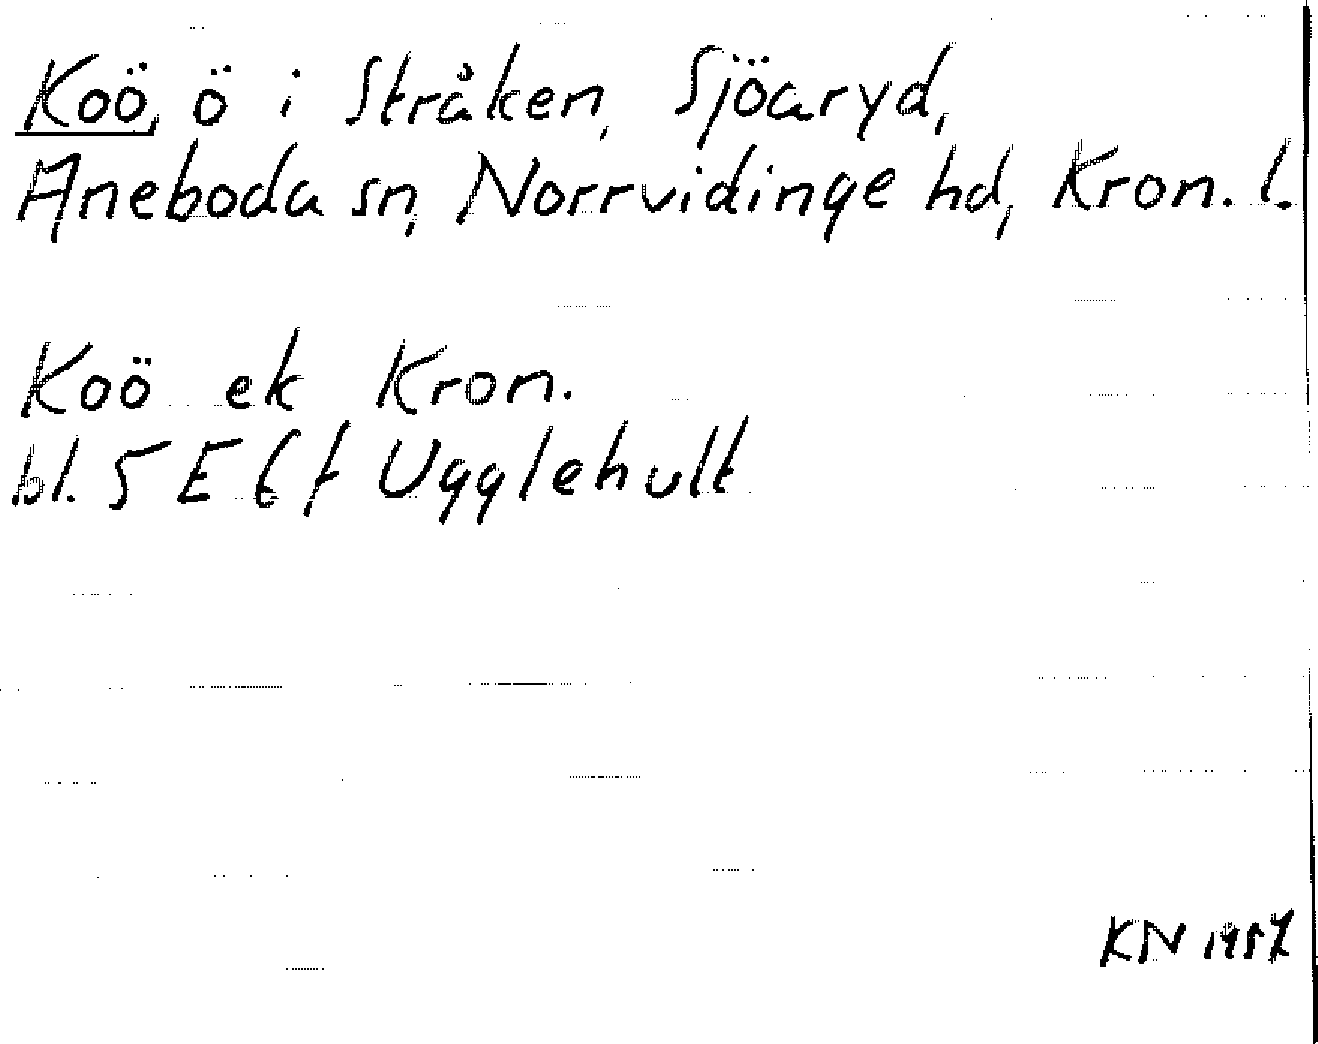 Koö, ö i Stråken, Sjöaryd,
Aneboda sn, Norrvidinge hd, Kron. l.
Koö ek Kron.
bl. 5 E 6 f Ugglehult
KN 1957